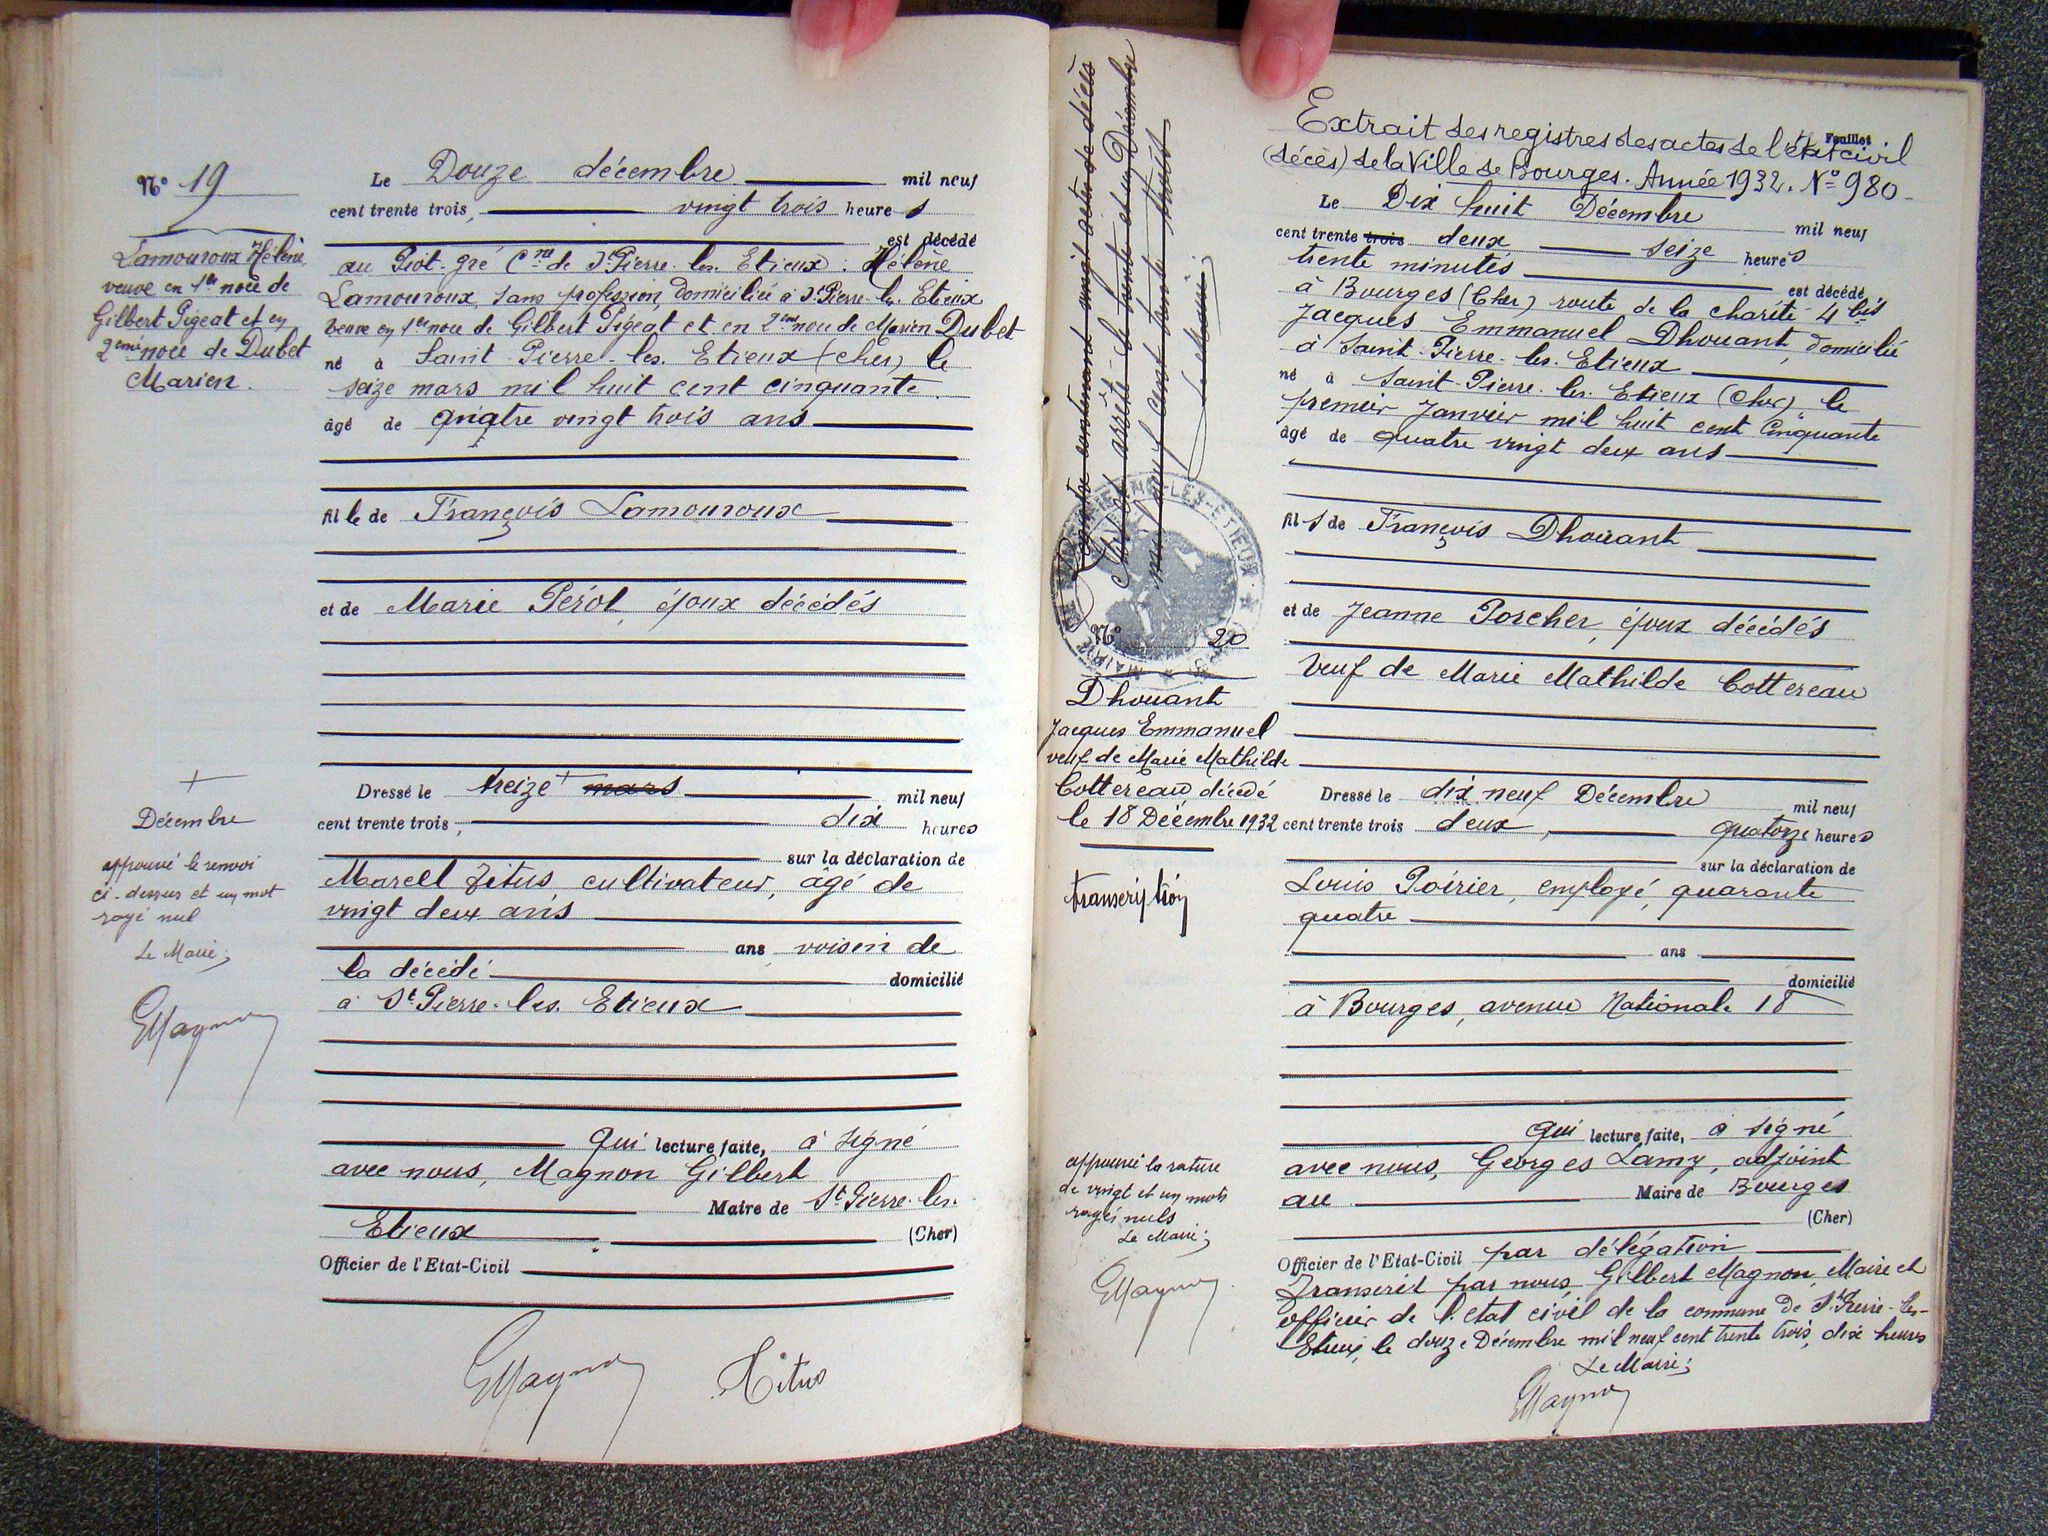 N° 19
Lamouroux Hélène
veuve en 1ère noce de
Gilbert Pigeat et en
2ème noce de Dubet
Marien.
Le Douze décembre mil neuf
cent trente trois, vingt trois heures
est décédé
au Piot-gré Cne de St Pierre-les-Etieux : Hélène
Lamouroux, sans profession, domiciliée à St Pierre-les-Etieux
veuve en 1ère noce de Gilbert Pigeat et en 2ème noce de Marien Dubet
né à Saint-Pierre-les-Etieux (Cher) le
seize mars mil huit cent cinquante.
âgé de quatre vingt trois ans
fille de François Lamouroux
et de Marie Pérot, époux décédés
Dressé le treize + mars mil neuf
cent trente trois, dix heures
sur la déclaration de
Marcel Titus cultivateur, âgé de
vingt deux ans
ans voisin de
la décédé domicilié
à St Pierre-les-Etieux
qui lecture faite, a signé
avec nous, Magnon Gilbert
Maire de St Pierre-les-
Etieux (Cher)
Officier de l'Etat-Civil
+
Décembre
approuvé le renvoi
ci-dessus et un mot
rayé nul
Le Maire;
GMagnon
GMagnon
Titus
Extrait des registres des actes de l'état civil
Feuillet
(décès) de la Ville de Bourges. Année 1932. N° 980
Le Dix huit Décembre mil neuf
cent trente trois deux seize heures
trente minutes
est décédé
à Bourges (Cher) route de la charité 4 bis
Jacques Emmanuel Dhouant, domicilié
à Saint-Pierre-les-Etieux
né à Saint-Pierre-les-Etieux (Cher) le
premier Janvier mil huit cent Cinquante
âgé de quatre vingt deux ans
fils de François Dhouant
et de Jeanne Porcher, époux décédés
Veuf de Marie Mathilde Cottereau
Dressé le dix neuf Décembre mil neuf
cent trente trois deux, quatorze heures
sur la déclaration de
Louis Poirier, employé, quarante
quatre
ans
domicilié
à Bourges, avenue Nationale 18
qui lecture faite, a signé
avec nous, Georges Lamy, adjoint
au Maire de Bourges
(Cher)
Officier de l'Etat-Civil par délégation
Transcrit par nous, Gilbert Magnon, Maire et
officier de l'état civil de la commune de St Pierre-les-
Etieux, le douze Décembre mil neuf cent trente trois, dix heures
Le Maire;
GMagnon
contenant vingt actes de décès
arrêté le trente et un Décembre
mil neuf cent trente trois
Le Maire;
N° 20
Dhouant
Jacques Emmanuel
veuf de Marie Mathilde
Cottereau décédé
le 18 Décembre 1932
transcription
approuvé la rature
de vingt et un mots
rayés nuls
Le Maire;
GMagnon